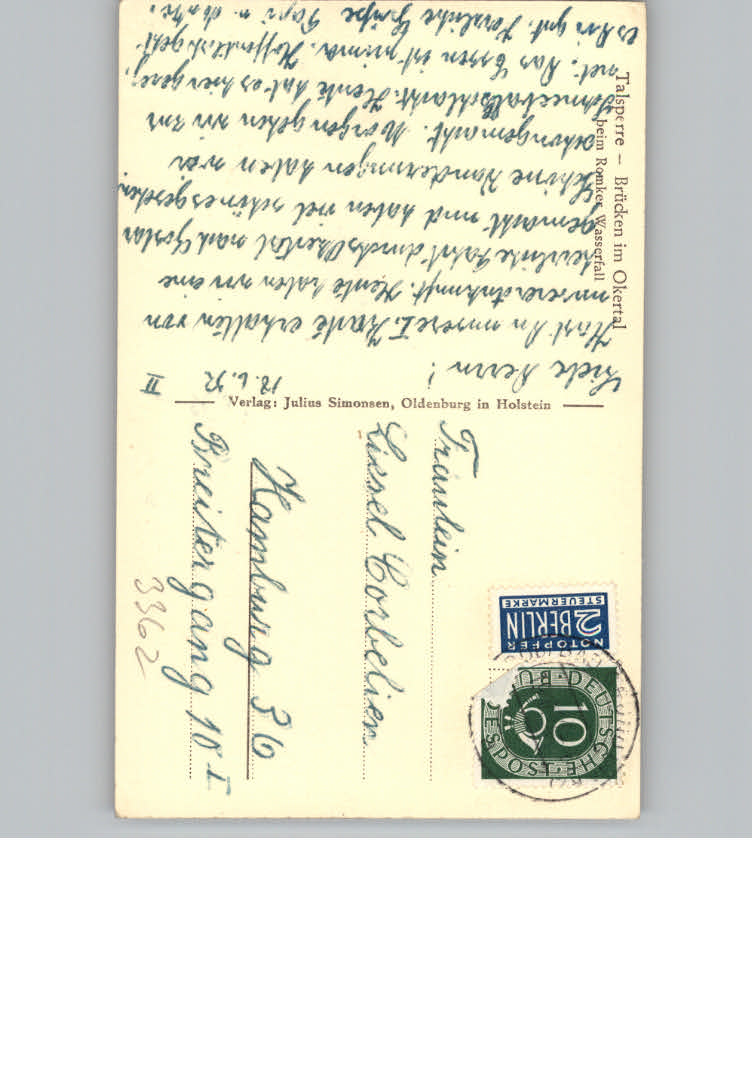 Talsperre – Brücken im Okertal
beim Romker Wasserfall
18.6.52 II
Liebe
Hast Du unsere I. Karte erhalten von
unserer Ankunft. Heute haben wir eine
herrliche Fahrt durchs Okertal nach Goslar
gemacht und haben viel schönes gesehen.
Schöne Wanderungen haben wir
schon gemacht. Morgen gehen wir zur
Heute hat es hier gereg-
net. Das Essen ist prima. Hoffentlich geht
es Dir gut. Herzliche Grüße
Verlag: Julius Simonsen, Oldenburg in Holstein
Fräulein
Liesel
Hamburg 36
Breitergang 10 I
3362
NOTOPFER
2 BERLIN
STEUERMARKE
DEUTSCHE BUNDESPOST
10